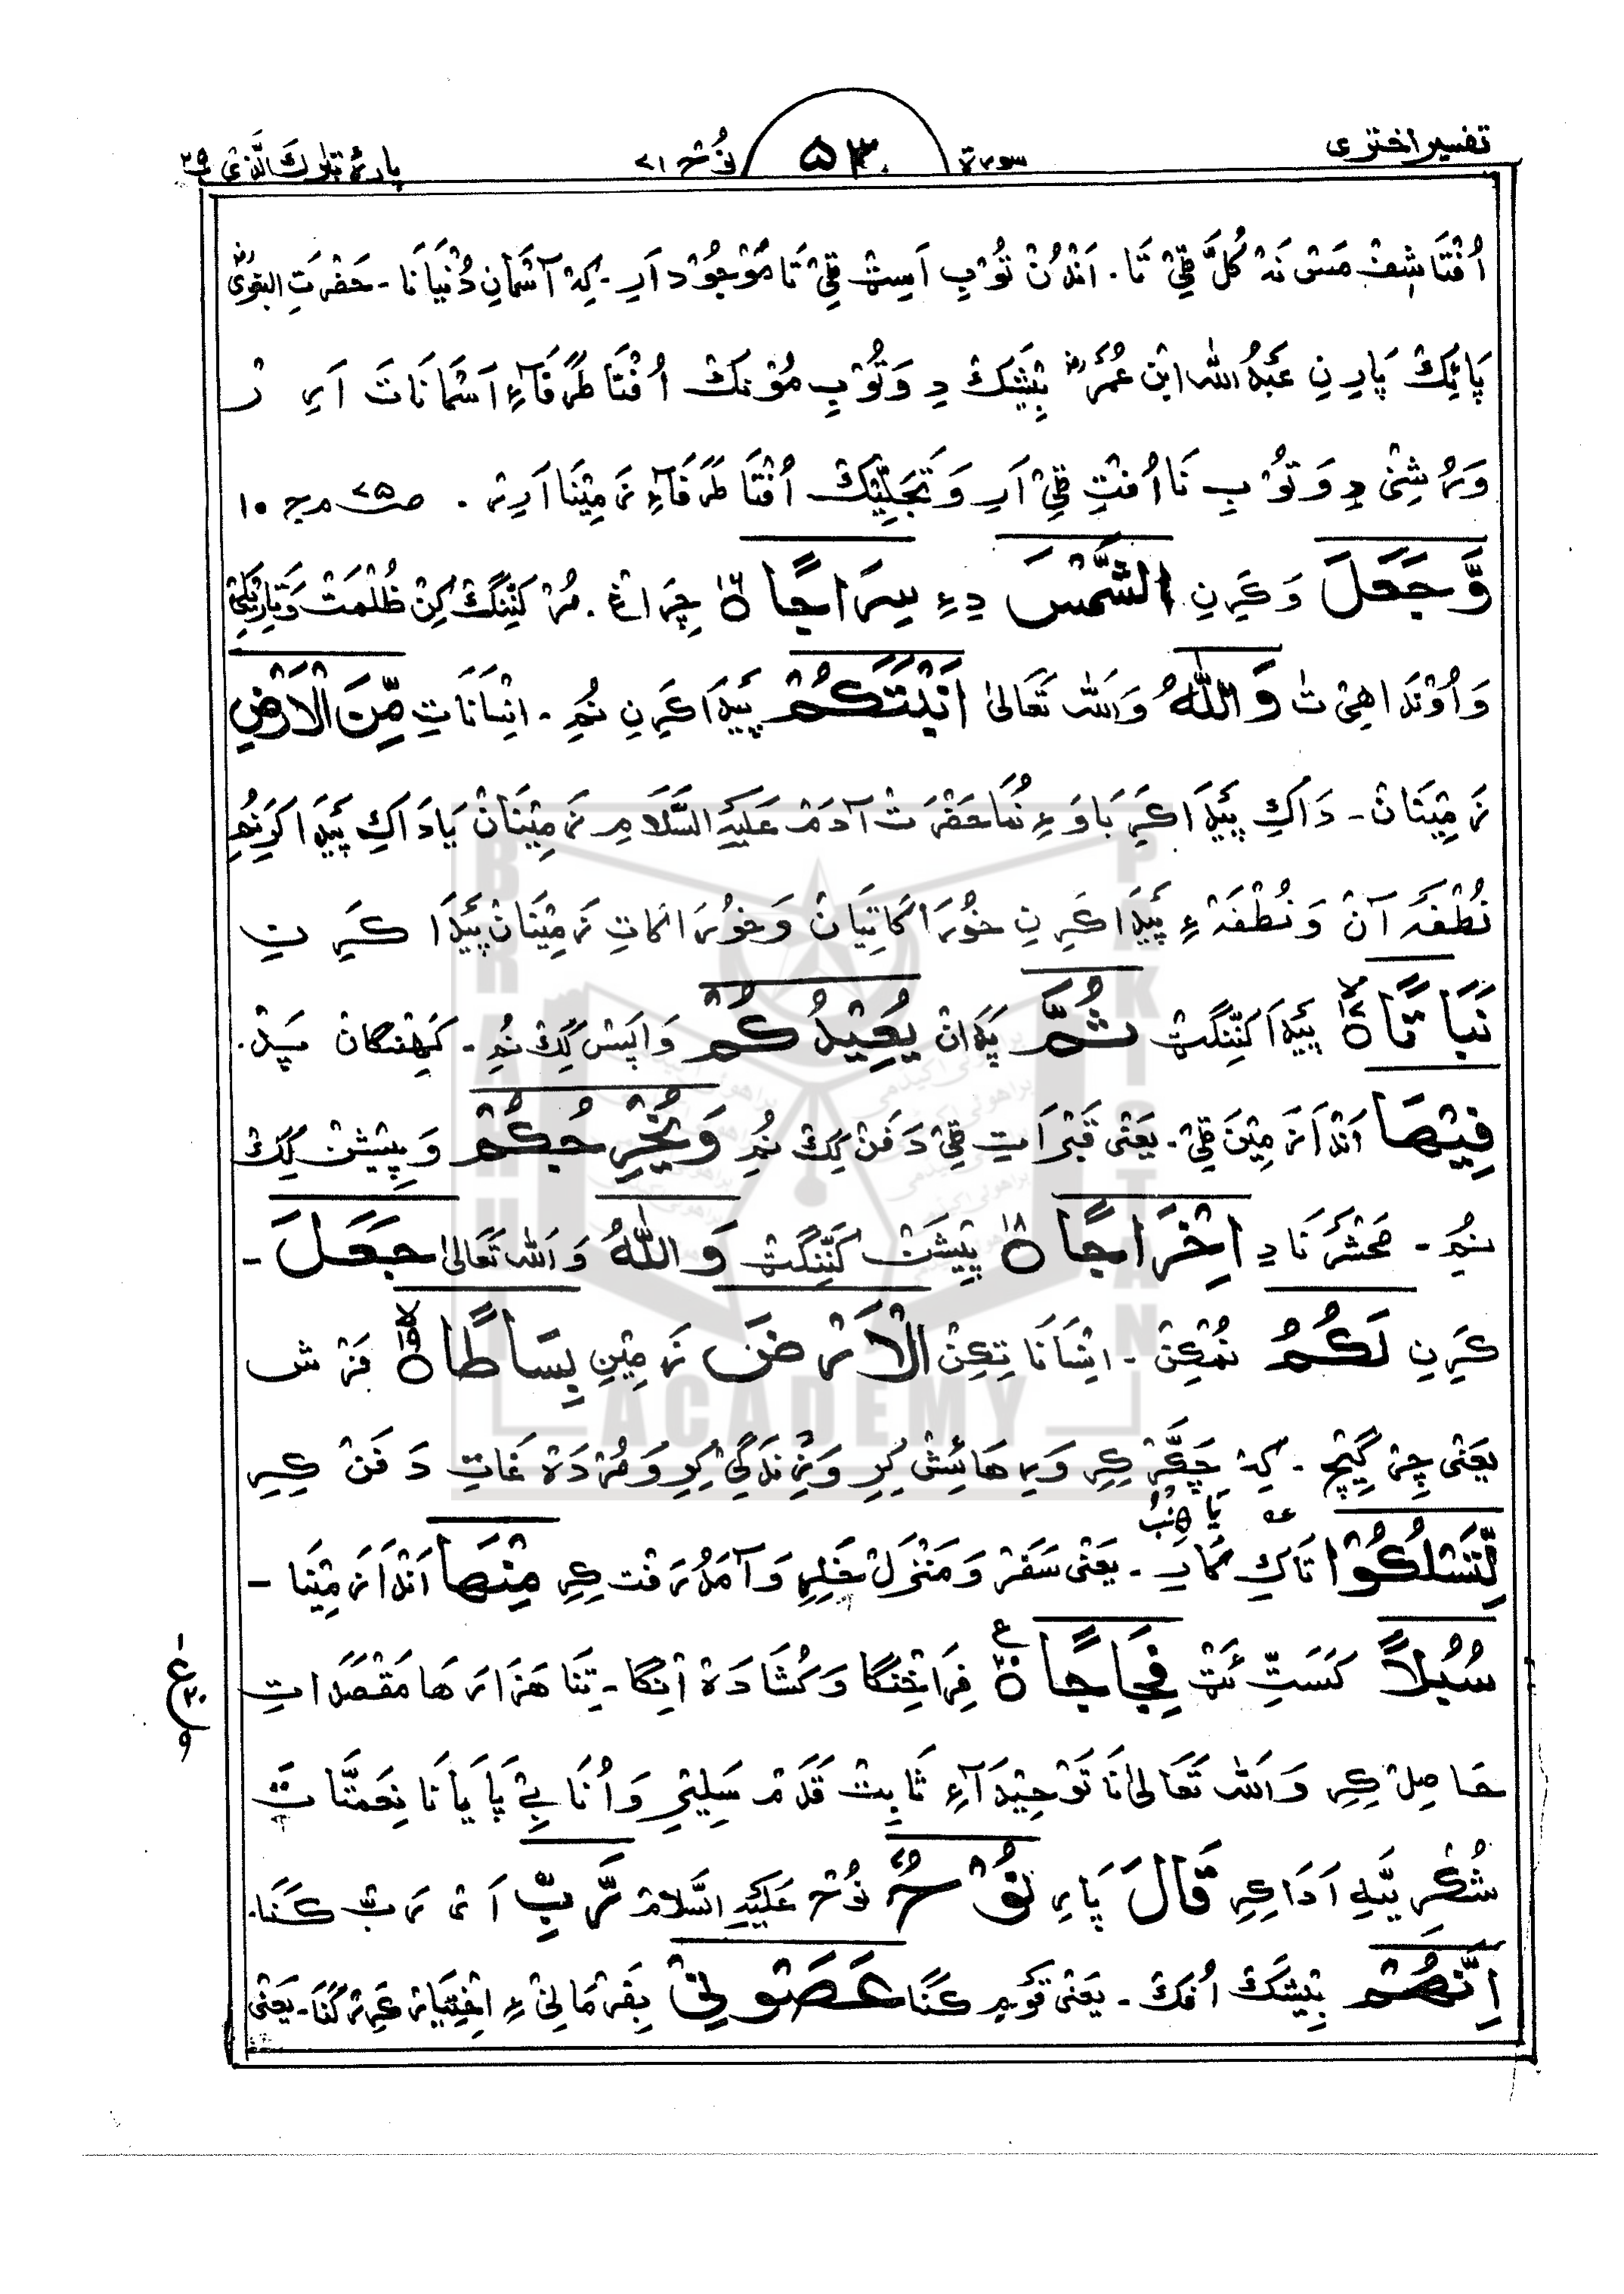 تفسیر اختری
سورة
۵۳
نُوْحٍ ۷۱
پارۂ تبٰرک الّذی ۲۹
اُفْتَا شِفْ مَسْ نَہْ کُلَّ ٹِیْ تَا ۔ اَنْدُنْ تُوْبِ اَسِٹْ ٹِیْ تَا مَوْجُوْد اَرِ ۔ کِہْ آسْمَانِ دُنْیَانَا ۔ حَضْرَتِ البغوی
پَائِکْ پَارِنِ عَبْدُ اللہ ابْن عُمَرؓ بِیْشَکْ دِ وَتُوْبِ مُوْنکْ اُفْتَا طَرَفَآءِ اَسْمَانَاتَ اَرِ ر
وَرُشِنْیِ دِ وَتُوْبِ نَا اُفْتِ ٹِیْ اَرِ وَتَجَلِّیْکْ اُفْتَا طَرَفَآءِ زَمِیْنَا اَرِرْ ۔ صـ ۷۵ ج ۱۰
وَّجَعَلَ وَکَرِنِ الشَّمْسَ دِءِ سِرَاجًا ۝۱۶ چِرَاغْ ۔ مُرْ کَنِّنْگْ کِنْ ظُلْمَتْ وَتَارِیْکِیْ
وَاُوْنْدَاهِیْ ٹ وَاللّٰهُ وَاَللہ تَعَالیٰ اَنْۢبَتَكُمْ پَیْدَا کَرِنِ نُمِ ۔ اِنْسَانَاتِ مِّنَ الْاَرْضِ
زَمِیْنَانْ ۔ دَاکِ پَیْدَا کَرِ بَاوَءِ نُمَا حَضْرَتْ آدَمْ عَلَیْہِ السَّلَامِ زَمِیْنَانْ یَا دَاکِ پَیْدَا کَرِ نُمِ
نُطْفَہ آنْ وَنُطْفَہْ ءِ پَیْدَا کَرِنِ خُوْرَاکَاتِیَانْ وَخُوْرَاکَاتِ زَمِیْنَانْ پَیْدَا کَرِنِ
نَبَاتًا ۝۱۷ پَیْدَا کَنِّنْگٹْ ثُمَّ پَدَانْ یُعِیْدُكُمْ وَاپَسْ کِکْ نُمِ ۔ کَہِنْگَانْ پَدْ ۔
فِیْهَا اَنْدَا زَمِیْنَ ٹِیْ ۔ یَعْنٰی قَبْرَاتِ ٹِیْ دَفَنْ کِکْ نُمِ وَیُخْرِجُكُمْ وَپِیْشَنْ کِکْ
نُمِ ۔ مَحْشَرْ نَا دِ اِخْرَاجًا ۝۱۸ پِیْشَنْ کَنِّنْگٹْ وَاللّٰهُ وَاَللہ تَعَالیٰ جَعَلَ ۔
کَرِنِ لَكُمُ نُمْکِنْ ۔ اِنْسَانَا تِکِنْ الْاَرْضَ زَمِیْنِ بِسَاطًا ۝۱۹ فَرْش
یَعْنٰی چِرْ گِیْچ ۔ کِہْ چَکَّرْ کِرِ وَرِهَائِشْ کِرِ وَزِنْدَگِیْ کِرِ وَمُرْدَہْ غَاتِ دَفَنْ کِرِ
یَا هِنُبْ
لِّتَسْلُكُوْا تَاکِ کَارِ ۔ یَعْنٰی سَفَرْ وَمَنْزَلْ خَلِرِ وَآمَدُ رَفْت کِرِ مِنْهَا اَنْدَا زَمِیْنَا ۔
سُبُلًا کَسَتِ ئٹْ فِجَاجًا ۝۲۰ فِرَاخِنْگَا وَکُشَادَہْ اَنْگَا ۔ تِنَا هَزَارَهَا مَقْصَدَاتِ
حَاصِلْ کِرِ وَاَللہ تَعَالیٰ نَا تَوْحِیْدَآءِ ثَابِتْ قَدَمْ سَلِیْرِ وَاُنَا بِیْ پَایَانَا نِعَمْتَاتَ
شُکْرِیَّہِ اَدَا کِرِ قَالَ پَارِ نُوْحٌ نُوْحْ عَلَیْہِ السَّلَامْ رَّبِّ اَیْ رَبّ کَنَا ۔
اِنَّهُمْ بِیْشَکْ اُفکْ ۔ یَعْنٰی قَوْمِ کَنَا عَصَوْنِیْ بِفَرْمَانِیْ ءِ اِخْتِیَارْ کَرِرْ کَنَا ۔ یَعْنٰی
BRAHUI
ACADEMY
PAKISTAN